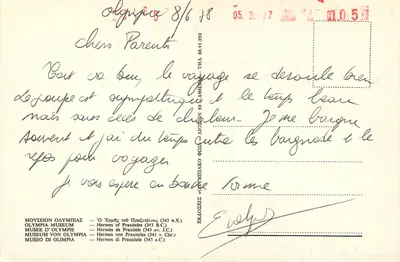 Olympie 8/6 88
05. 3. 77 050
chers Parents
Tout va bien, le voyage se deroule bien
Le groupe est sympathique et le temps beau
mais sans excès de chaleur. Je me baigne
souvent et j'ai du temps entre les baignades et le
repos pour voyager
Je vous espere en bonne forme
ΜΟΥΣΕΙΟΝ ΟΛΥΜΠΙΑΣ — Ὁ Ἑρμῆς τοῦ Πραξιτέλους (343 π.Χ.)
OLYMPIA MUSEUM — Hermes of Praxiteles (343 B.C.)
MUSEE D'OLYMPIE — Hermès de Praxitèle (343 av. J.C.)
MUSEUM VON OLYMPIA — Hermes von Praxiteles (343 v. Chr.)
MUSEO DI OLIMPIA — Hermes di Prassitele (343 a.C.)